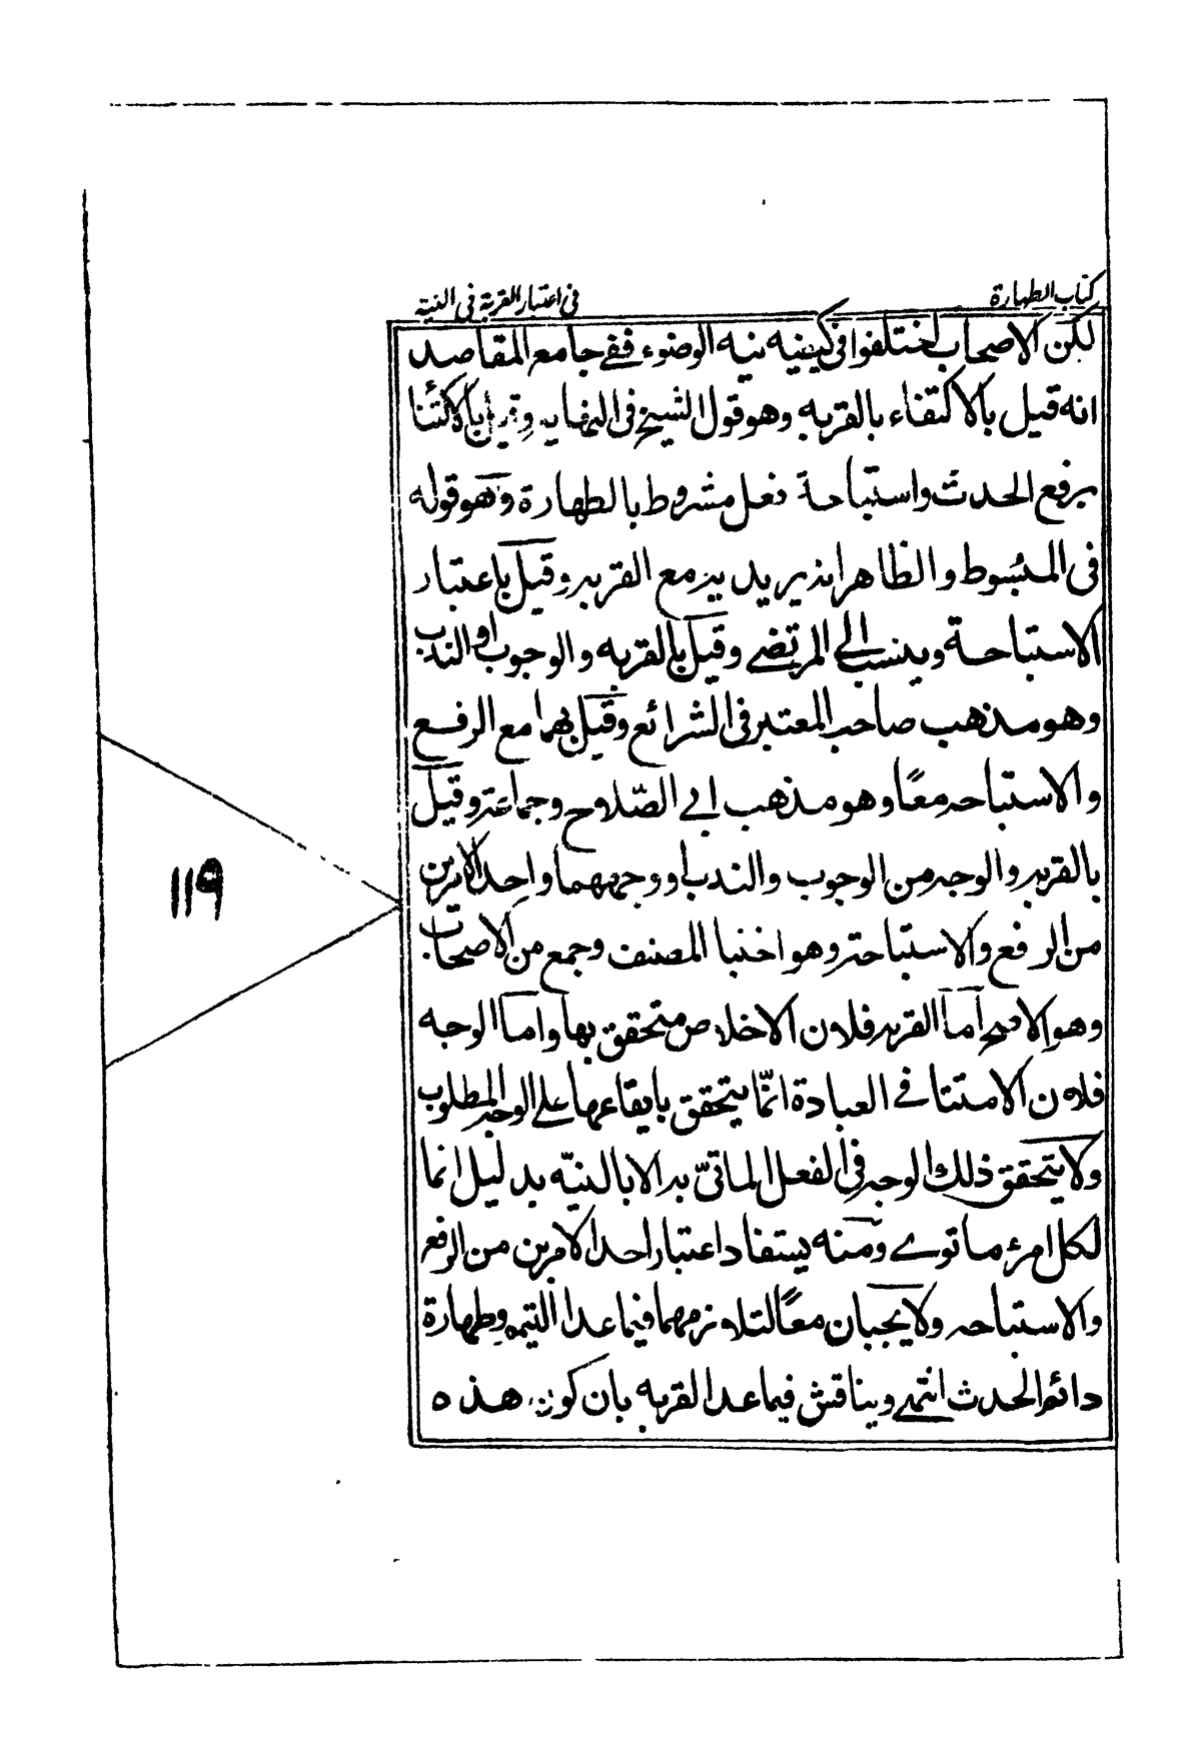 كتاب الطهارة
فى اعتبار القربة فى النية
لكن الاصحاب اختلفوا فى كيفيه نيه الوضوء ففى جامع المقاصد
انه قيل بالاكتفاء بالقربه وهو قول الشيخ فى النهايه وقيل بالاكتفا
برفع الحدث واستباحة فعل مشروط بالطهارة وهو قوله
فى المبسوط والظاهر انه يريد به مع القربه وقيل باعتبار
الاستباحة وينسب الى المرتضى وقيل بالقربه والوجوب او الندب
وهو مذهب صاحب المعتبر فى الشرائع وقيل بهما مع الرفع
والاستباحه معًا وهو مذهب ابى الصّلاح وجماعته وقيل
بالقربه والوجه من الوجوب والندب او وجههما واحد الامرين
من الرفع والاستباحته وهو اختيا المصنف وجمع من الاصحاب
وهو الاصح اما القربه فلان الاخلاص متحقق بها واما الوجه
فلان الامتثا فى العبادة انّما يتحقق بايقاعها على الوجه المطلوب
ولا يتحقق ذلك الوجه فى الفعل الماتىّ به الا بالنيّه بدليل انما
لكل امرء ما نوى ومنه يستفاد اعتبار احد الامرين من الرفع
والاستباحه ولا يجبان معًا لتلازمهما فيما عدا التيمم وطهارة
دائم الحدث انتهى ويناقش فيما عدا القربه بان كون هذه
١١٩